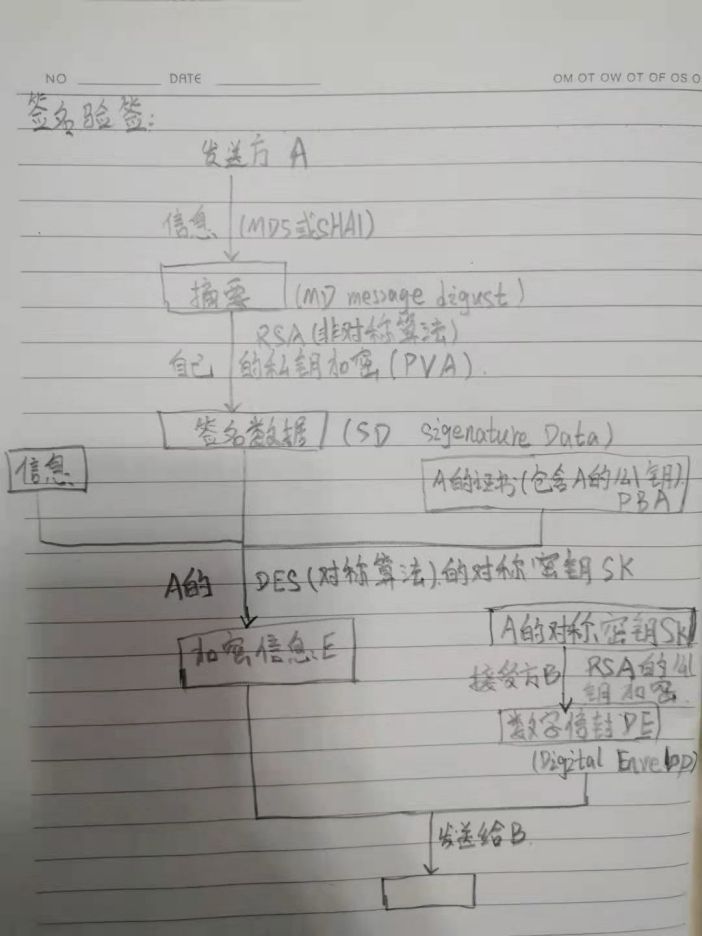 NO DATE OM OT OW OT OF OS O
签名验签:
发送方 A
信息 (MD5或SHA1)
摘要 (MD message digust)
RSA(非对称算法)
自己 的私钥加密(PVA).
签名数据 (SD sigenature Data)
信息
A的证书(包含A的公钥)
PBA
A的 DES(对称算法).的对称密钥SK
加密信息E
A的对称密钥SK
接受方B RSA的公
钥加密
数字信封DE
(Digital Envelop)
发送给B